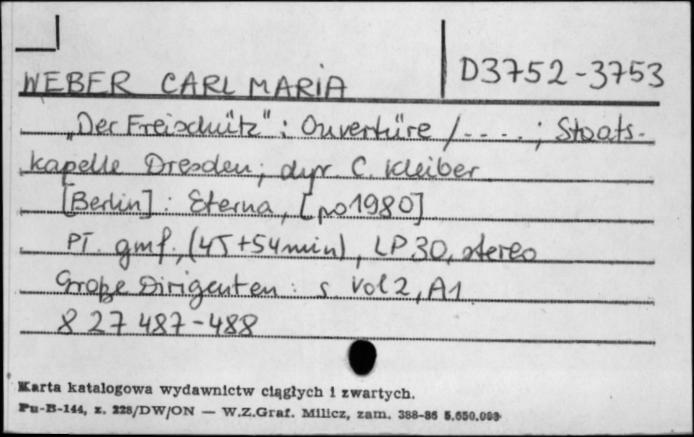 WEBER CARL MARIA
D3752-3753
„Der Freischütz": Ouvertüre /....; Staats-
kapelle Dresden; dyr. C. Kleiber
[Berlin]: Eterna, [po 1980]
Pł. gmf., (45+54min), LP 30, stereo
Große Dirigenten: s vol 2, A1
8 27 487-488
Karta katalogowa wydawnictw ciągłych i zwartych.
Pu-B-144, z. 228/DW/ON — W.Z.Graf. Milicz, zam. 388-86 5.650.000